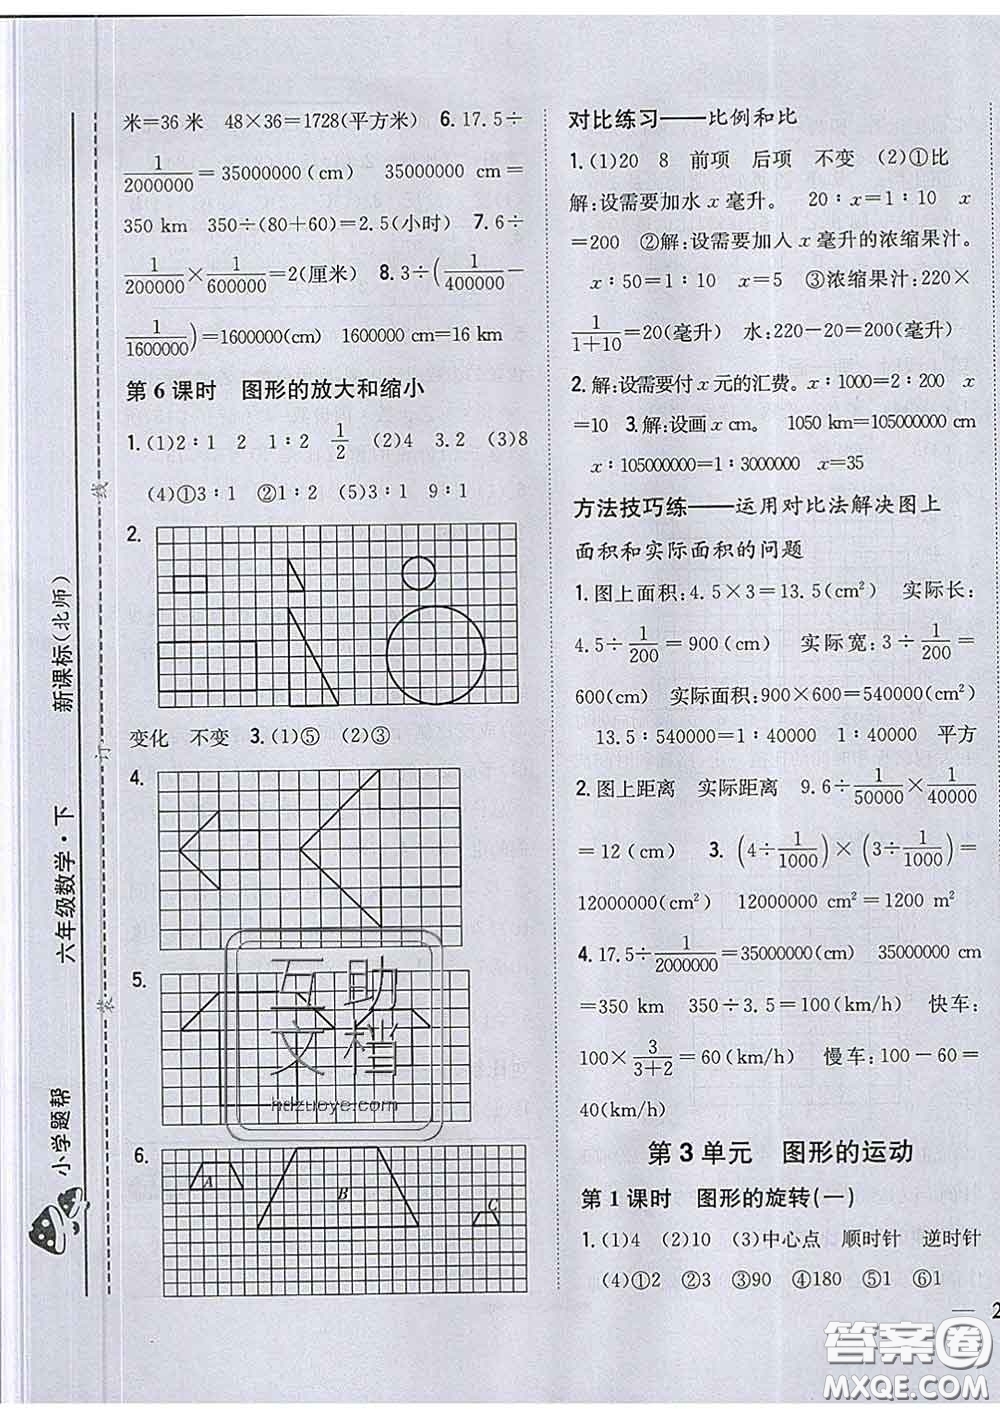 米=36 米　48×36=1728(平方米)　6. 17.5÷
1/2000000=35000000(cm)　35000000 cm=
350 km　350÷(80+60)=2.5(小时)　7. 6÷
1/200000×1/600000=2(厘米)　8. 3÷(1/400000−
1/1600000)=1600000(cm)　1600000 cm=16 km
第 6 课时　图形的放大和缩小
1. (1)2∶1　2　1∶2　1/2　(2)4　3.2　(3)8
(4)①3∶1　②1∶2　(5)3∶1　9∶1
2.
变化　不变　3. (1)⑤　(2)③
4.
5.
6.
A
B
C
对比练习——比例和比
1. (1)20　8　前项　后项　不变　(2)①比
解:设需要加水 x 毫升。　20∶x=1∶10　x
=200　②解:设需要加入 x 毫升的浓缩果汁。
x∶50=1∶10　x=5　③浓缩果汁:220×
1/1+10=20(毫升)　水:220−20=200(毫升)
2. 解:设需要付 x 元的汇费。x∶1000=2∶200　x
=10　3. 解:设画 x cm。　1050 km=105000000 cm
x∶105000000=1∶3000000　x=35
方法技巧练——运用对比法解决图上
面积和实际面积的问题
1. 图上面积:4.5×3=13.5(cm²)　实际长:
4.5÷1/200=900(cm)　实际宽:3÷1/200=
600(cm)　实际面积:900×600=540000(cm²)
13.5∶540000=1∶40000　1∶40000　平方
2. 图上距离　实际距离　9.6÷1/50000×1/40000
=12(cm)　3. (4÷1/1000)×(3÷1/1000)=
12000000(cm²)　12000000 cm²=1200 m²
4. 17.5÷1/2000000=35000000(cm)　35000000 cm
=350 km　350÷3.5=100(km/h)　快车:
100×3/3+2=60(km/h)　慢车:100−60=
40(km/h)
第 3 单元　图形的运动
第 1 课时　图形的旋转(一)
1. (1)4　(2)10　(3)中心点　顺时针　逆时针
(4)①2　②3　③90　④180　⑤1　⑥1
— 2
小学题帮　六年级数学·下　新课标(北师)
装 订 线
互助文档
hdzuoye.com
答案圈
MXQE.COM